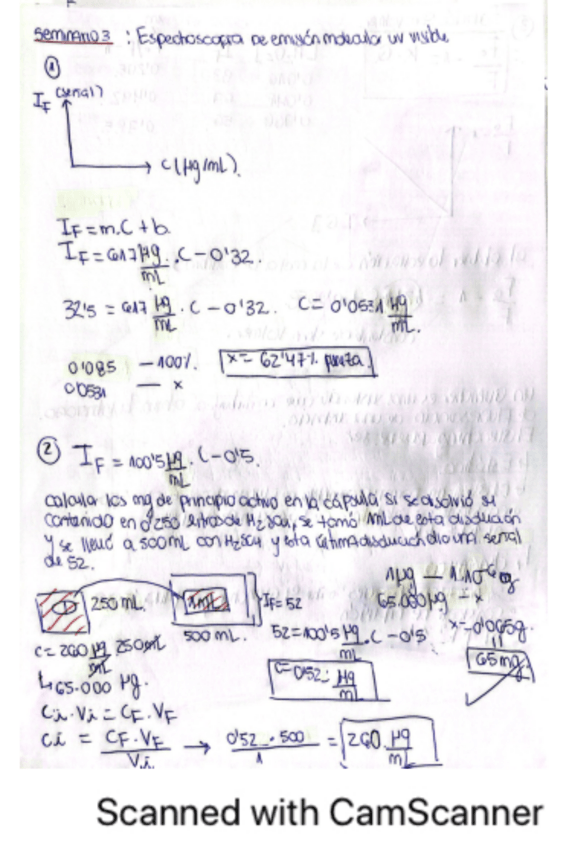 Seminario 3 : Espectroscopia de emisión molecular uv visible
①
IF (señal)
C (µg/mL).
IF = m.C + b.
IF = 617 µg/mL . C - 0'32.
32'5 = 617 µg/mL . C - 0'32. C = 0'0531 µg/mL.
0'085 — 100%. x = 62'47% pureza.
0'0531 — x
② IF = 100'5 µg/mL . C - 0'5.
calcula los mg de principio activo en la cápsula si se disolvió su
contenido en 0'250 litros de H2SO4, se tomó 1mL de esta disolución
y se llevó a 500mL con H2SO4 y esta última disolución dio una señal
de 52.
1µg — 1.10-6 g
250 mL. 1mL IF = 52 65.000µg — x
500 mL. 52 = 100'5 µg/mL . C - 0'5 x = 0'065g.
C = 260 µg/mL 250mL C = 0'52 µg/mL 65mg
↳ 65.000 µg.
Ci . Vi = CF . VF
Ci = CF . VF / Vi → 0'52 . 500 / 1 = 260 µg/mL
Scanned with CamScanner